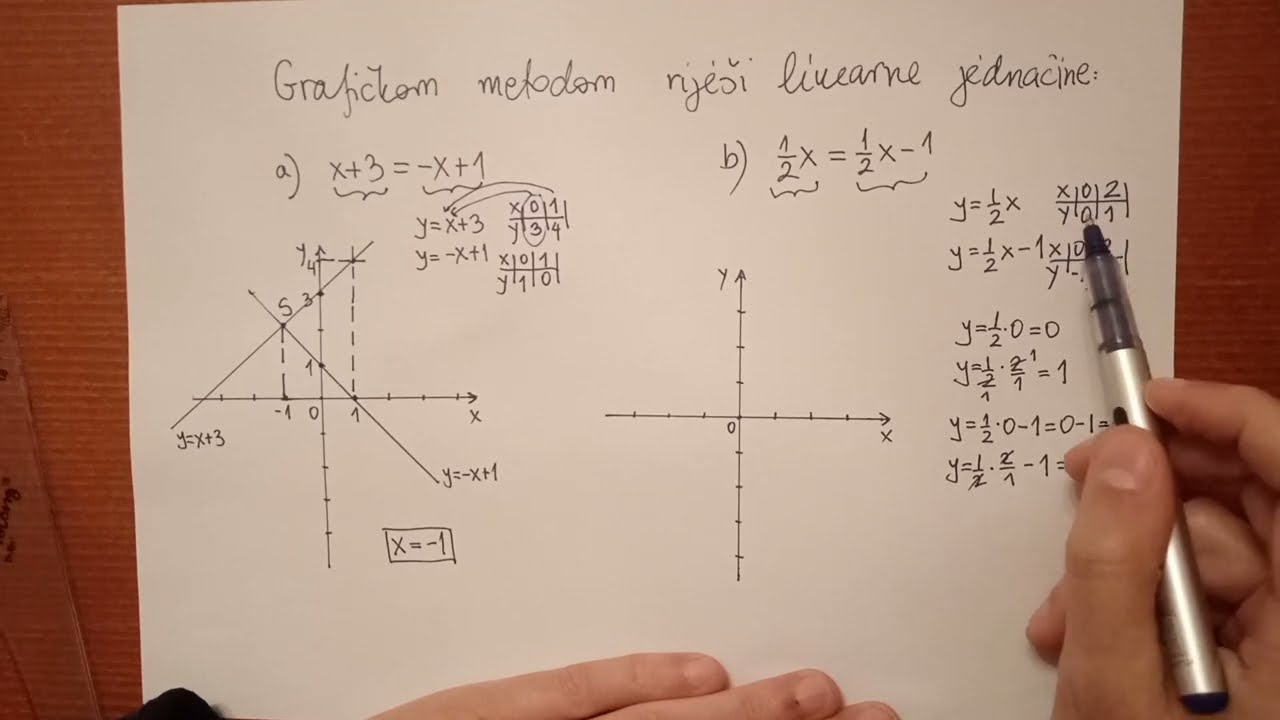 Grafičkom metodom riješi linearne jednačine:
a) x+3 = -x+1
y=x+3
x|0|1|
y|3|4|
y=-x+1
x|0|1|
y|1|0|
y
4
3
S
1
-1 0 1 x
y=x+3
y=-x+1
x=-1
b) 1/2 x = 1/2 x - 1
y=1/2 x
x|0|2|
y|0|1|
y=1/2 x - 1
x|0
y
y
0
x
y=1/2 · 0 = 0
y=1/2 · 2/1 = 1
1
1
y=1/2 · 0 - 1 = 0 - 1 =
y=1/2 · 2/1 - 1 =